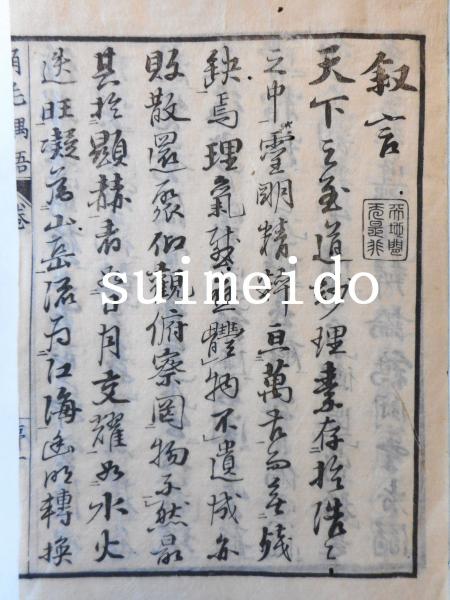 叙言
天下之至道妙理素存於浩々
之中靈明精粹亘萬古而無殘
缺焉理氣 物不遺成亦
敗散還聚仰觀俯察罔物不然最
其於顯赫者日月交耀如水火
迭旺凝為山岳流為江海 轉換
偶語
suimeido